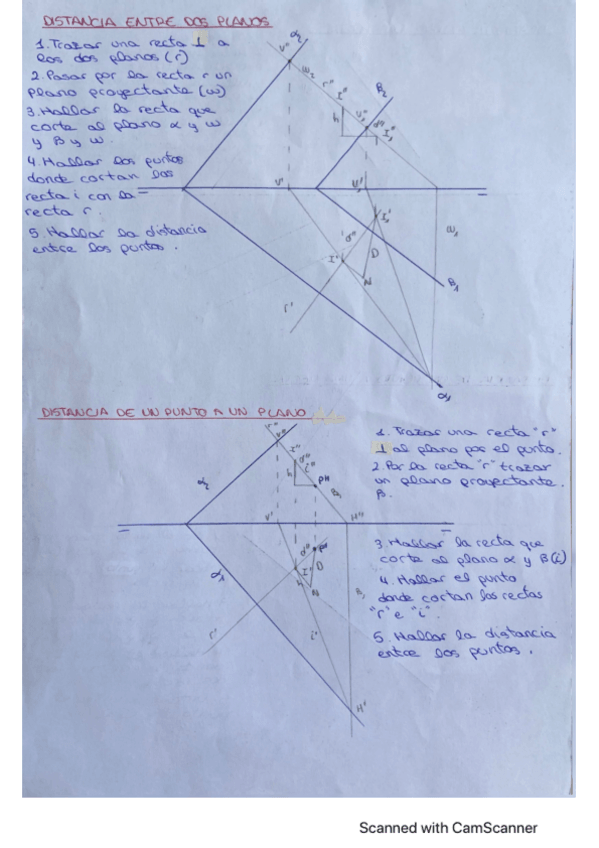 DISTANCIA ENTRE DOS PLANOS
1. Trazar una recta ⊥ a
los dos planos (r)
2. Pasar por la recta r un
plano proyectante (ω)
3. Hallar la recta que
corte al plano α y ω
y β y ω.
4. Hallar los puntos
donde cortan las
recta i con la
recta r.
5. Hallar la distancia
entre los puntos.
α2
V"
ω2
r"
I"
β2
h
V1"
d"
I1"
V'
V1'
I1'
ω1
d'
I'
D
N
β1
r'
α1
DISTANCIA DE UN PUNTO A UN PLANO
1. Trazar una recta "r"
⊥ al plano por el punto.
2. Por la recta "r" trazar
un plano proyectante
β.
3. Hallar la recta que
corte al plano α y β (i)
4. Hallar el punto
donde cortan las rectas
"r" e "i".
5. Hallar la distancia
entre los puntos.
r"
V"
I"
d"
i"
α2
h
P"
β2
V'
H"
d"
P'
α1
I'
D
N
β1
r'
i'
H'
Scanned with CamScanner